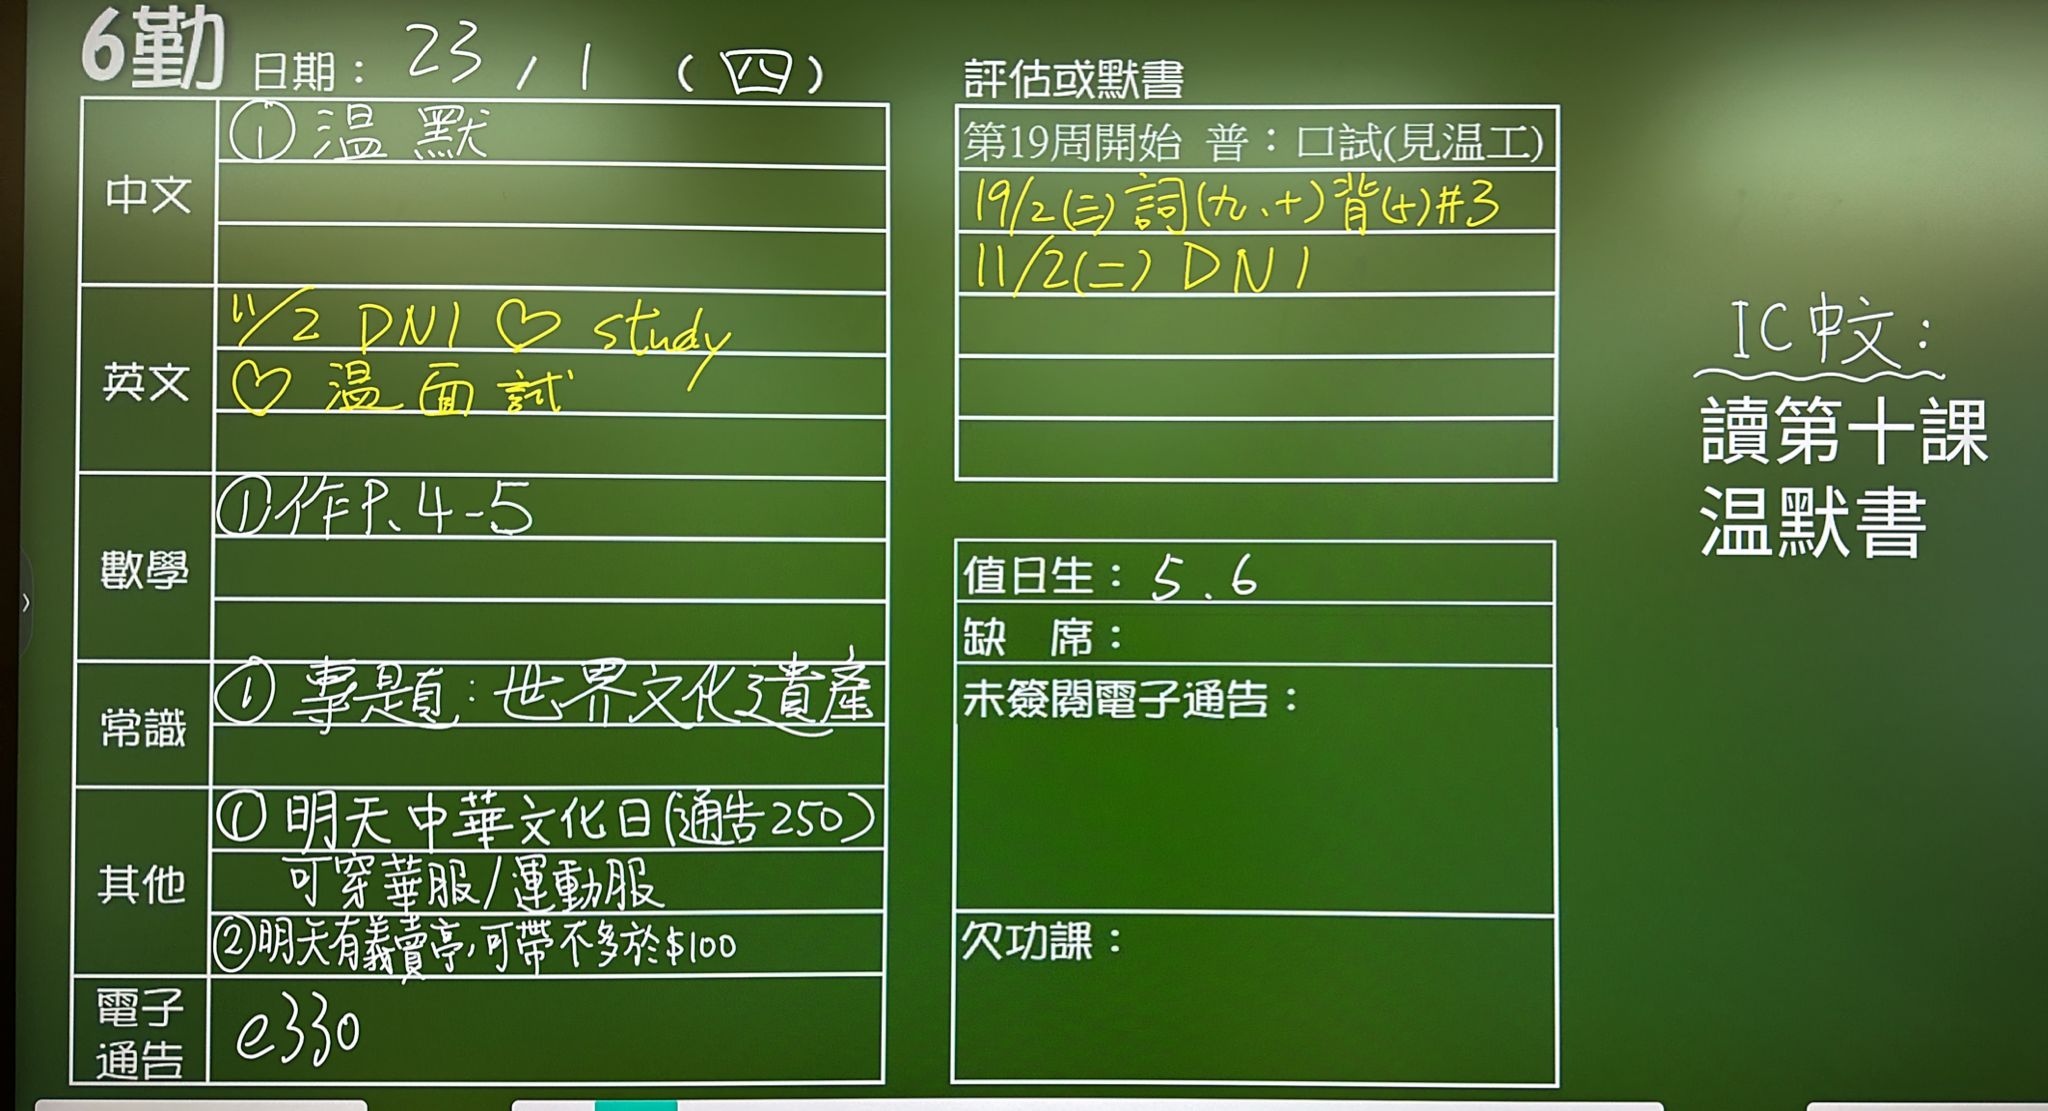 6勤 日期：23/1（四）
中文
① 温默
英文
11/2 DN1 ♡ study
♡ 温面試
數學
① 作P.4-5
常識
① 專題：世界文化遺產
其他
① 明天中華文化日(通告250)
可穿華服/運動服
② 明天有義賣亭,可帶不多於$100
電子
通告
e330
評估或默書
第19周開始 普：口試(見温工)
19/2(三)詞(九、十)背(十)#3
11/2(二) DN1
值日生：5.6
缺 席：
未簽閱電子通告：
欠功課：
IC中文：
讀第十課
温默書